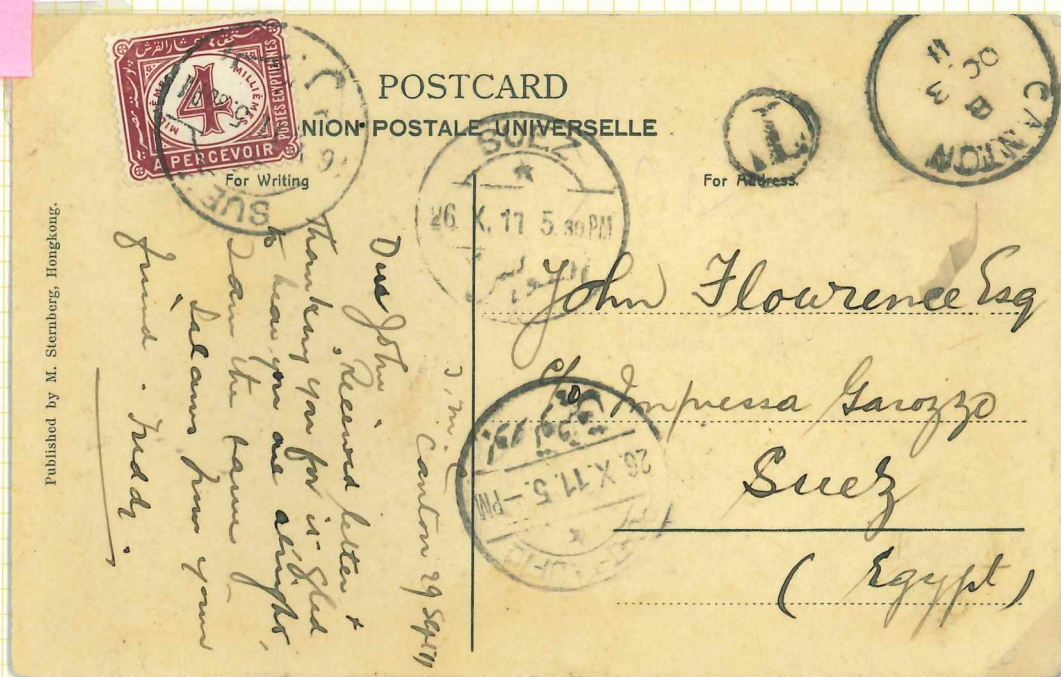 POSTCARD
UNION POSTALE UNIVERSELLE
For Writing
For Address.
4
MILLIÈMES
MILLIÈMES
POSTES EGYPTIENNES
A PERCEVOIR
T
CANTON
B
3
OC
11
SUEZ
26. X. 11 5.30PM
السويس
26. X. 11. 5.—PM
Published by M. Sternberg, Hongkong.
Canton 29 Sept 11
Dear John,
Received letter &
thanking you for is. Glad
to hear you are alright,
I am the same —
Salams from your
friend. Freddy.
John Flowrence Esq
c/o Impressa Garozzo
Suez
(Egypt)